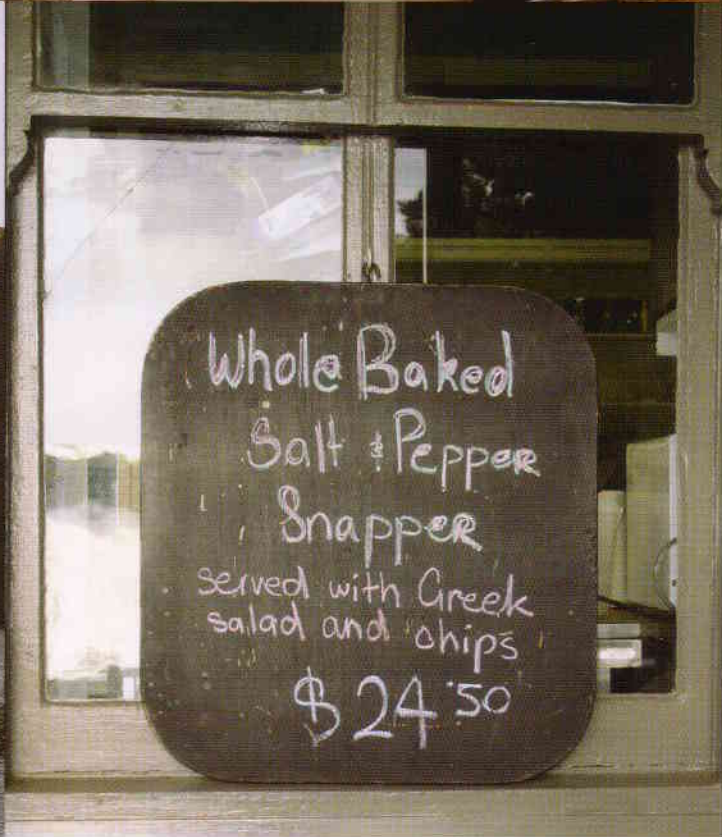 Whole Baked
Salt & Pepper
Snapper
served with Greek
salad and chips
$24.50